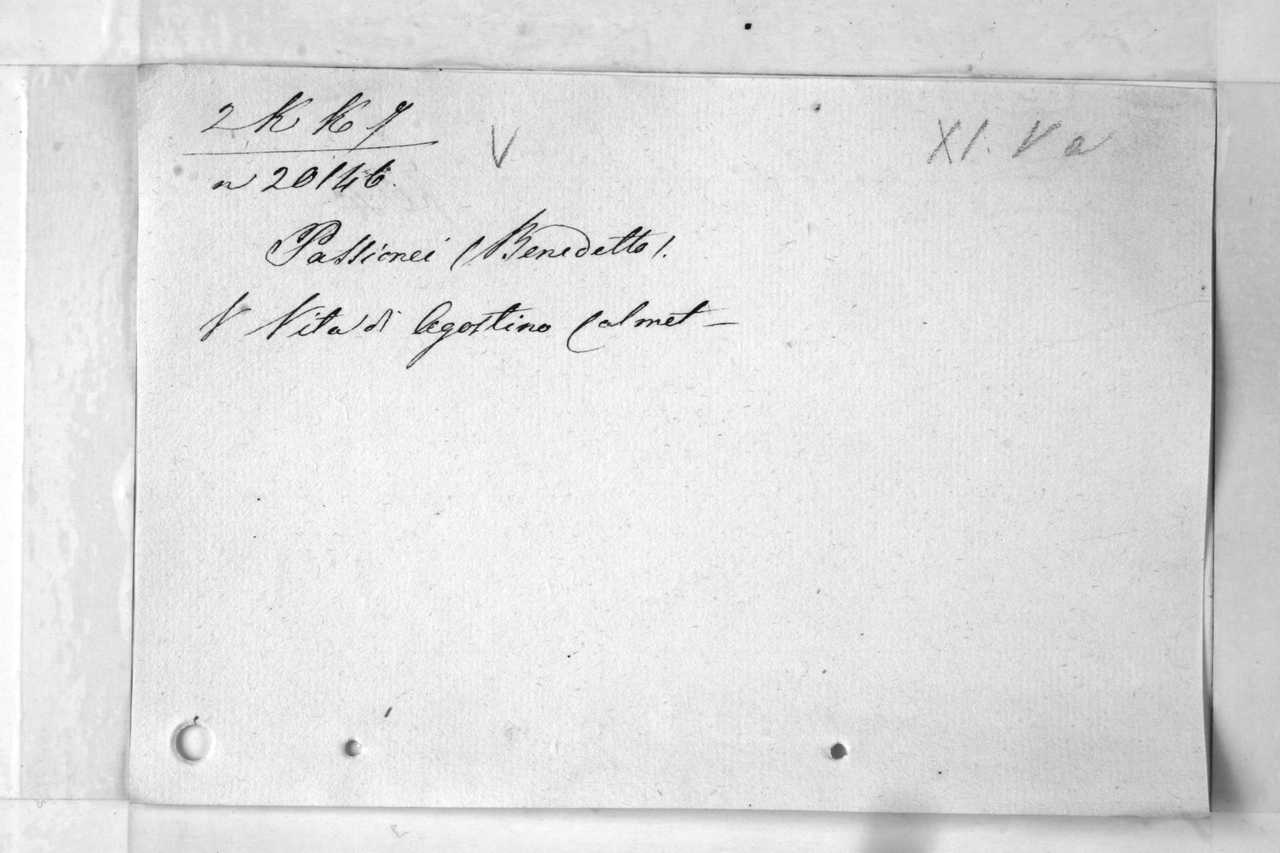 2 K K 7
V
XI. V a
n 20146.
Passionei (Benedetto).
V Vita di Agostino Calmet —